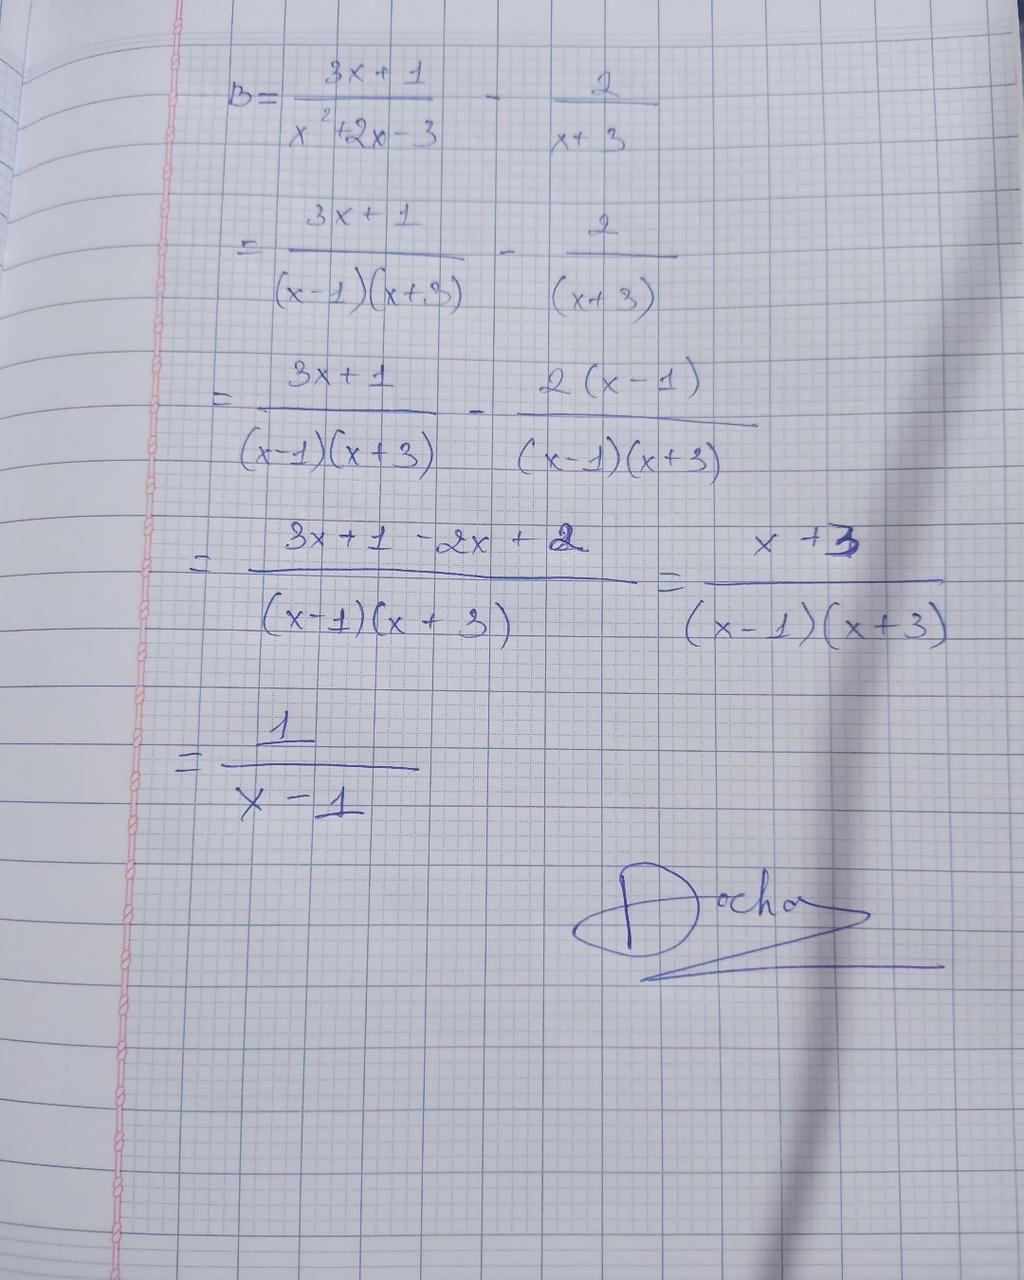 B = \frac{3x + 1}{x^2 + 2x - 3} - \frac{2}{x + 3}
= \frac{3x + 1}{(x - 1)(x + 3)} - \frac{2}{(x + 3)}
= \frac{3x + 1}{(x - 1)(x + 3)} - \frac{2(x - 1)}{(x - 1)(x + 3)}
= \frac{3x + 1 - 2x + 2}{(x - 1)(x + 3)} = \frac{x + 3}{(x - 1)(x + 3)}
= \frac{1}{x - 1}
Docha